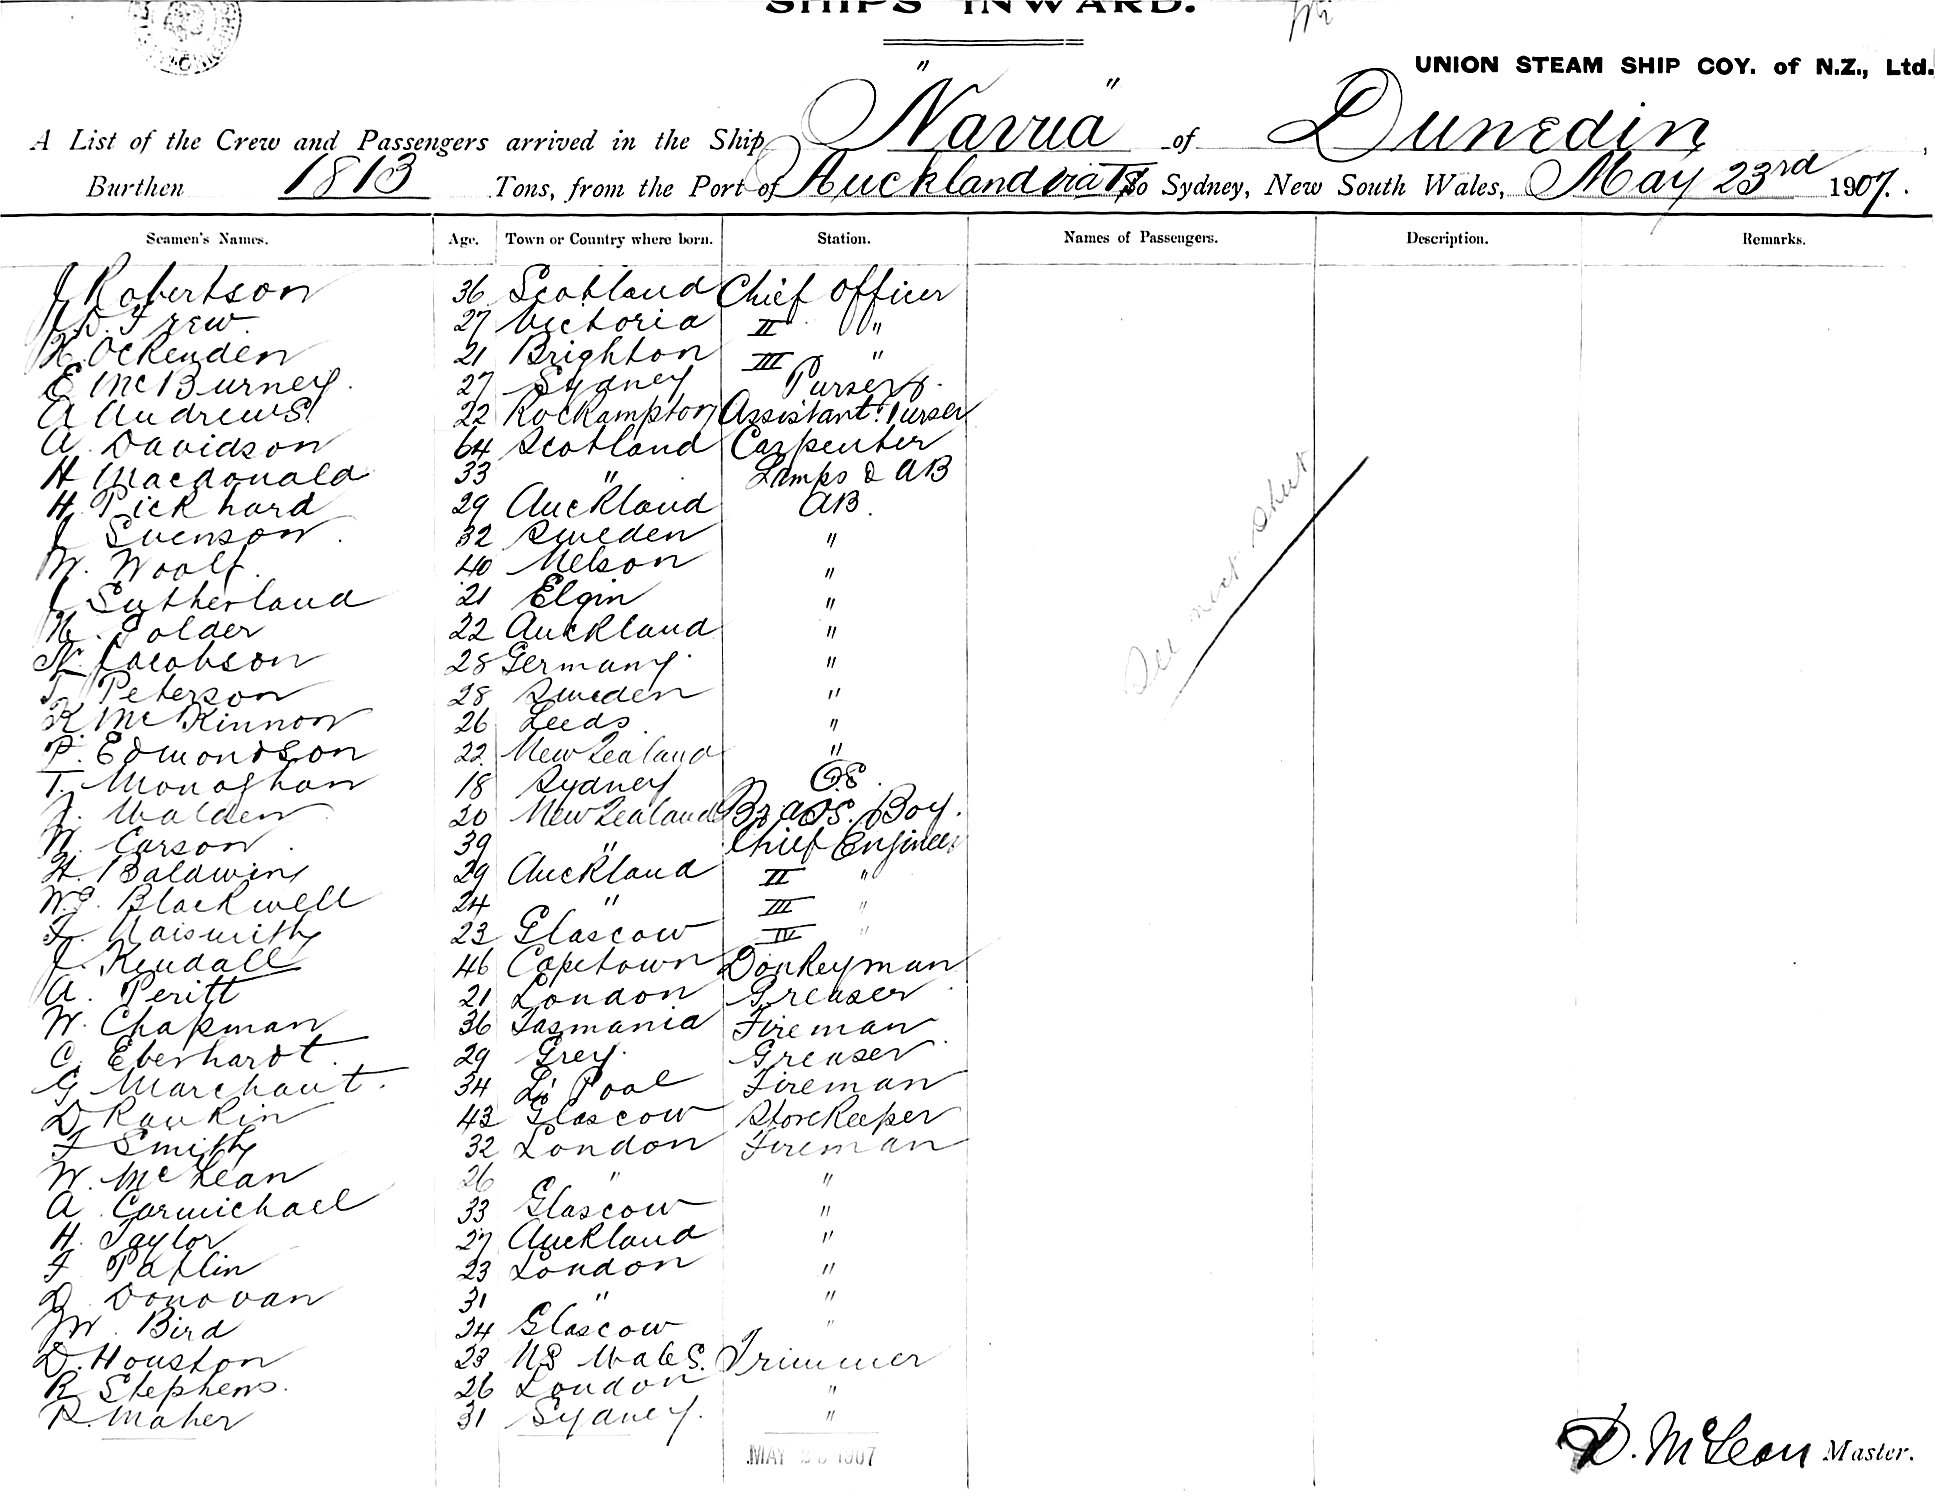 SHIPS INWARD.
UNION STEAM SHIP COY. of N.Z., Ltd.
A List of the Crew and Passengers arrived in the Ship "Navua" of Dunedin,
Burthen 1813 Tons, from the Port of Auckland via to Sydney, New South Wales, May 23rd 1907.
Seamen's Names. Age. Town or Country where born. Station. Names of Passengers. Description. Remarks.
J Robertson 36 Scotland Chief Officer
J D. Frew. 27 Victoria II "
H. Ockenden 21 Brighton III "
E McBurney. 27 Sydney Purser.
A Andrews. 22 Rockampton Assistant Purser
A. Davidson 64 Scotland Carpenter
H Macdonald 33 " Lamps & AB
H. Pickhard 29 Auckland AB.
J Svenson. 32 Sweden "
W. Woolf. 40 Nelson "
J Sutherland 21 Elgin "
Polder 22 Auckland "
Jacobson 28 Germany. "
Peterson 28 Sweden "
K. McKinnon 26 Leeds. "
P. Edmondson 22 New Zealand "
T. Monaghan 18 Sydney OS.
J. Walden 20 New Zealand Brass. Boy.
W. Carson. 39 " Chief Engineer
H. Baldwin 29 Auckland II "
W.G. Blackwell 24 " III "
F. Naismith 23 Glascow IV "
J. Kendall 46 Capetown Donkeyman
A. Peritt 21 London Greaser
W. Chapman 36 Tasmania Fireman
C. Eberhardt. 29 Grey. Greaser
G Marchant. 34 L'Pool Fireman
D Rankin 43 Glascow Storekeeper
F Smith 32 London Fireman
W. McLean 26 " "
A Carmichael 33 Glascow "
H. Taylor 27 Auckland "
F Patlin 23 London "
D. Donovan 31 " "
W. Bird 34 Glascow "
D. Houston 23 NS Wales. Trimmer
R Stephens. 26 London "
R. Maher 31 Sydney. "
See next sheet
MAY 1907
D. McLean Master.